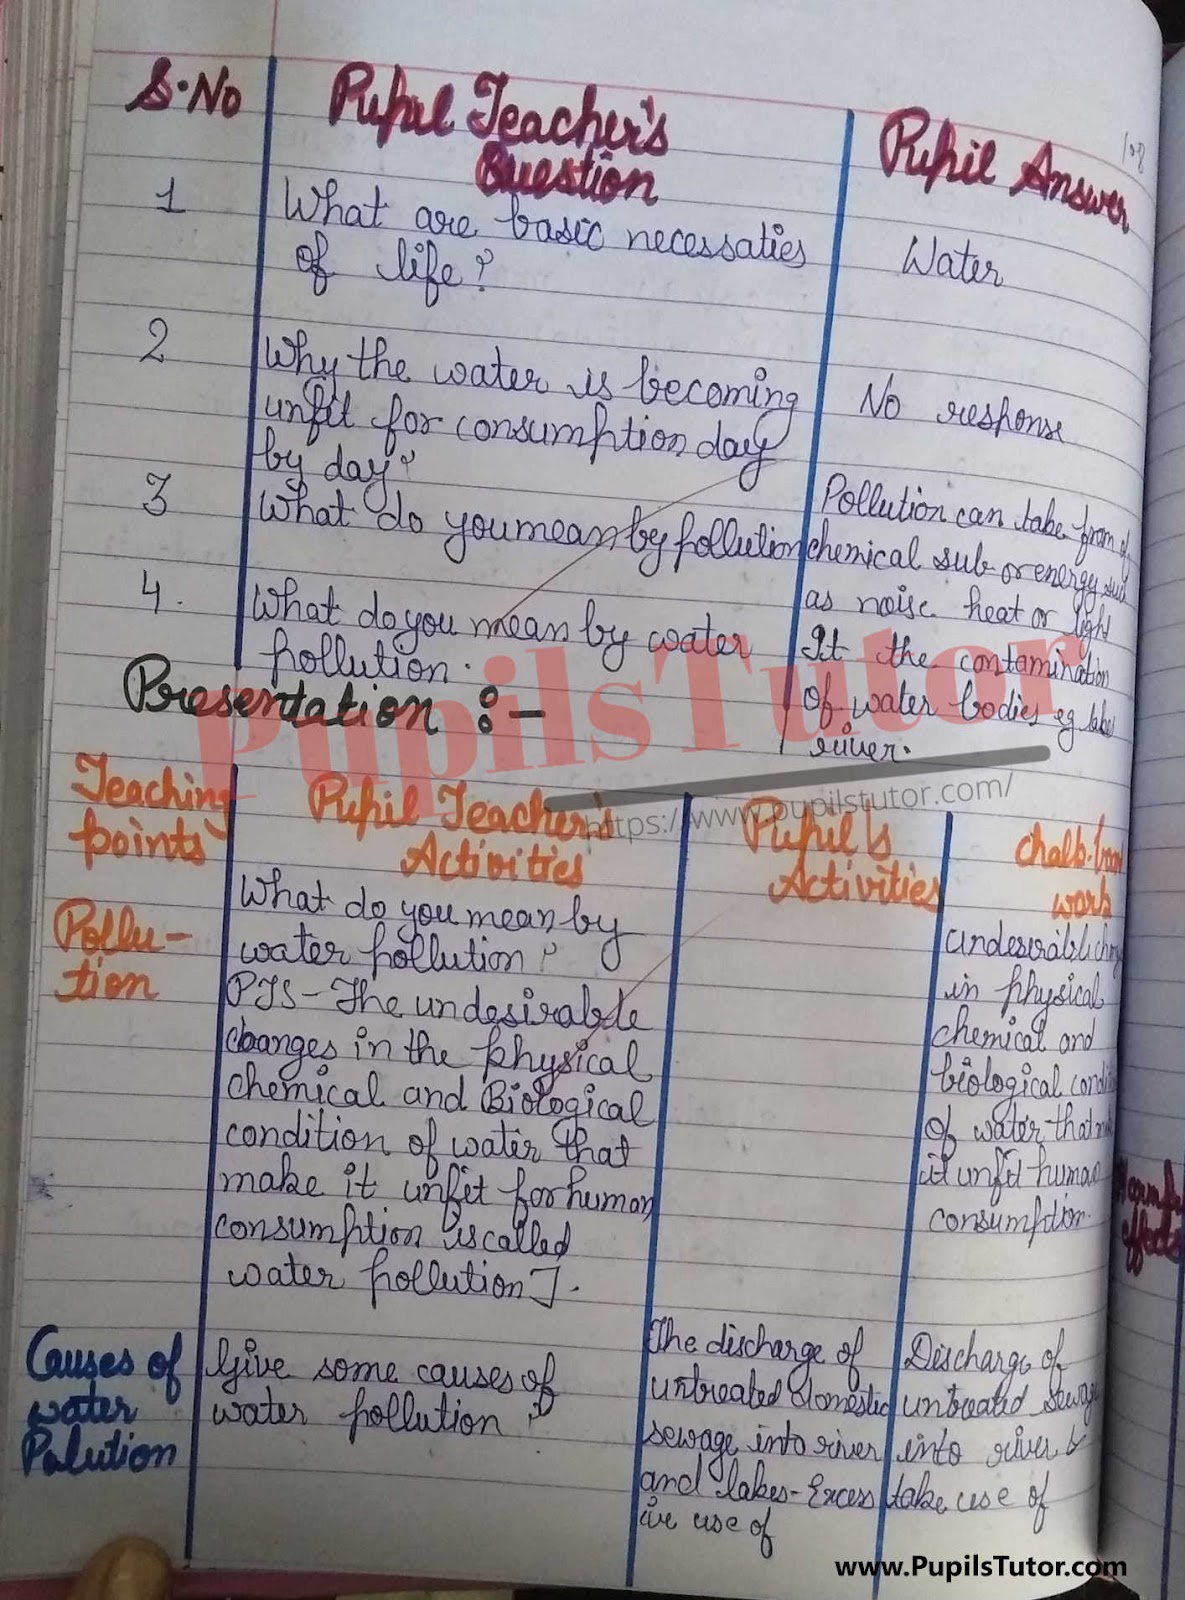 108
S.No
Pupil Teacher's
Question
Pupil Answer
1
What are basic necessaties
of life?
Water
2
Why the water is becoming
unfit for consumption day
by day?
No response
3
What do you mean by pollution
Pollution can take from of
chemical sub or energy such
as noise heat or light
4.
What do you mean by water
pollution.
It the contamination
of water bodies eg lakes
river.
Presentation :-
Teaching
points
Pupil Teacher's
Activities
Pupil's
Activities
Chalk-board
work
Pollu-
tion
What do you mean by
water pollution?
PTS - The undesirable
changes in the physical
chemical and Biological
condition of water that
make it unfit for human
consumption is called
water pollution].
undesirable
in physical
chemical and
biological
of water that
it unfit human
consumption.
Causes of
water
Palution
Give some causes of
water pollution?
The discharge of
untreated domestic
sewage into river
and lakes - Excess
ive use of
Discharge of
untreated sewage
into river &
take use of
effects
PupilsTutor
https://www.pupilstutor.com/
www.PupilsTutor.com